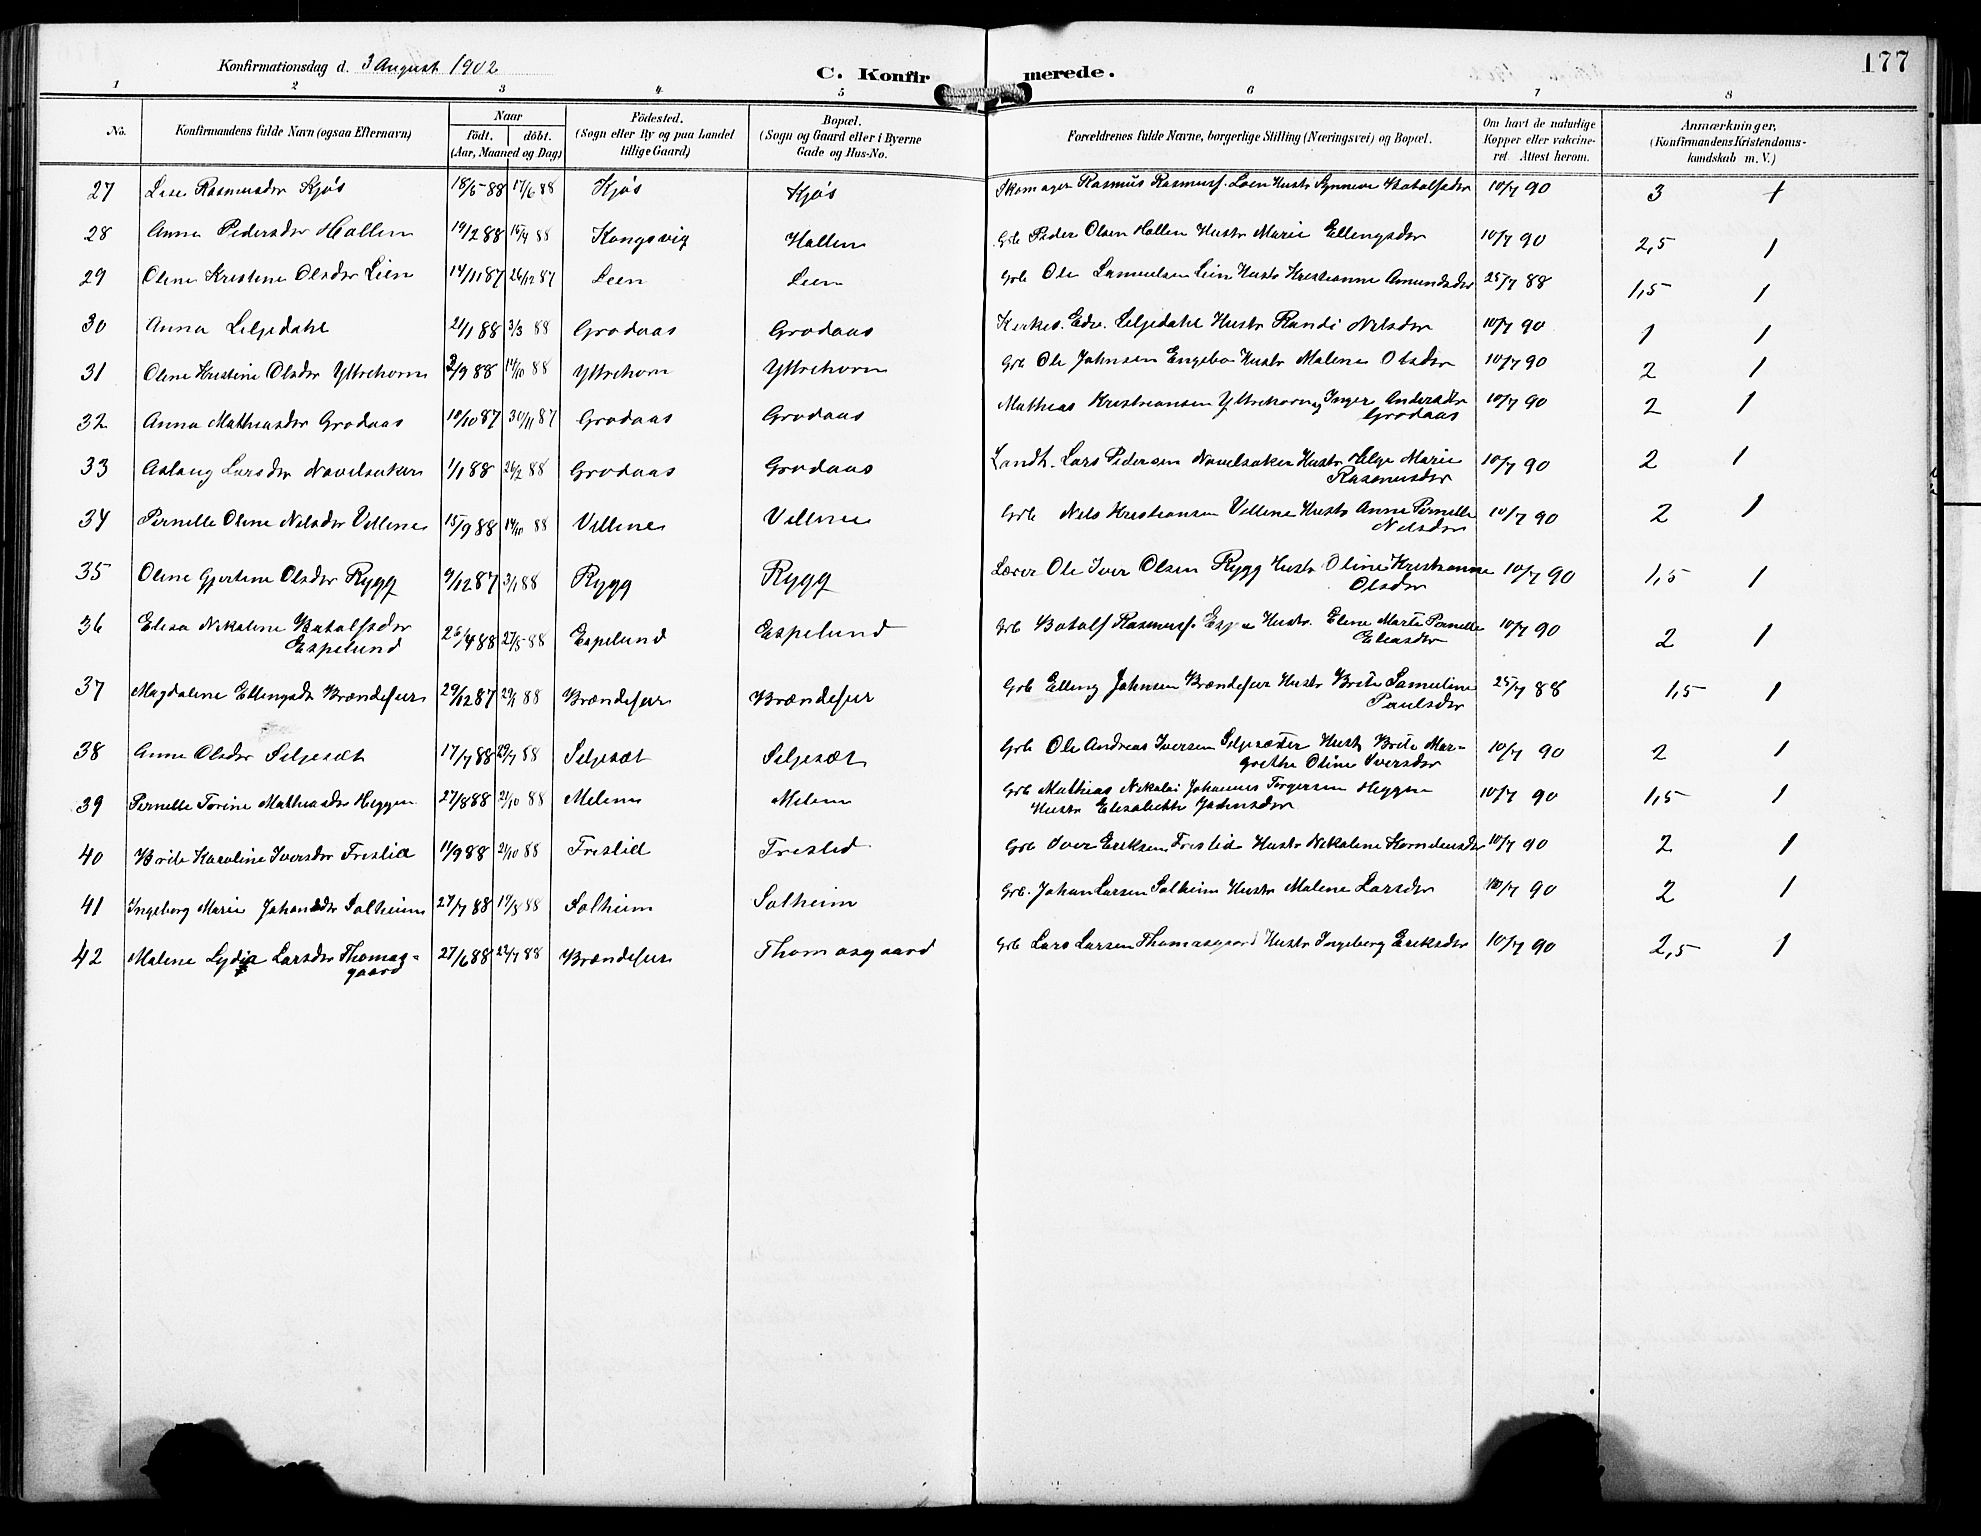 177
Konfirmationsdag d. 3 August 1902
C. Konfirmerede.
1 2 3 4 5 6 7 8
No. Konfirmandens fulde Navn (ogsaa Efternavn) Naar födt. döbt. (Aar, Maaned og Dag) Födested. (Sogn eller By og paa Landet tillige Gaard) Bopæl. (Sogn og Gaard eller i Byerne Gade og Hus-No. Forældrenes fulde Navne, borgerlige Stilling (Næringsvei) og Bopæl. Om havt de naturlige Kopper eller vakcineret. Attest herom. Anmærkninger, (Konfirmandens Kristendomskundskab m. V.)
27 Lise Rasmusdtr Kjós 18/5 88 17/6 88 Kjós Kjós Skomager Rasmus Rasmuss. Loen Hustr Synneve Botolfsdtr 10/7 90 3 1
28 Anna Pedersdtr Hallen 19/2 88 15/4 88 Kongsvig Hallen Grb Peder Olsen Hallen Hustr Marie Ellingsdtr 10/7 90 2,5 1
29 Oline Kristine Olsdtr Lien 14/11 87 26/12 87 Leen Leen Grb Ole Samuelsen Lien Hustr Kristianne Amundsdtr 25/7 88 1,5 1
30 Anna Liljedahl 21/1 88 3/3 88 Grodaas Grodaas Kirkes. Edv. Liljedahl Hustr Randi Nilsdtr 10/7 90 1 1
31 Oline Kristine Olsdtr Yttrehorn 2/9 88 14/10 88 Yttrehorn Yttrehorn Grb Ole Johnsen Engebo Hustr Malene Olsdtr 10/7 90 2 1
32 Anna Mathiasdtr Grodaas 10/10 87 30/11 87 Grodaas Grodaas Mathias Kristiansen Yttrehorn og Inger Andersdtr 10/7 90 2 1
Grodaas
33 Aslaug Larsdtr Navelsaker 1/1 88 26/2 88 Grodaas Grodaas Landh. Lars Pedersen Navelsaker Hustr Helge Marie 10/7 90 2 1
Rasmusdtr
34 Pernille Oline Nilsdtr Villene 15/9 88 14/10 88 Villene Villene Grb Nils Kristiansen Villene Hustr Anne Pernille 10/7 90 2 1
Nilsdtr
35 Oline Gjertine Olsdtr Rygg 9/12 87 3/1 88 Rygg Rygg Lærer Ole Iver Olsen Rygg Hustr Oline Kristianne 10/7 90 1,5 1
Olsdtr
36 Elisa Nikoline Botolfsdtr 26/4 88 27/5 88 Espelund Espelund Grb Botolf Rasmuss. Hustr. Eline Marte Pernille 10/7 90 2 1
Espelund Eliasdtr
37 Magdalene Ellingsdt Brændefur 29/12 87 29/1 88 Brændefur Brændefur Grb Elling Johnsen Brændefur Hustr Brite Samueline 25/7 88 1,5 1
Paulsdtr
38 Anne Olsdtr Siljesæt 17/7 88 29/7 88 Siljesæt Siljesæt Grb Ole Andreas Iversen Siljesæter Hustr Brite Mar- 10/7 90 2 1
grethe Oline Iversdtr
39 Pernille Torine Mathiasdtr Heggen 27/8 88 21/10 88 Melem Melem Grb Mathias Nikolai Johannes Torgersen Heggen 10/7 90 1,5 1
Hustr Elisabeth Johnsdtr
40 Brite Karoline Iversdtr Frislid 11/9 88 21/10 88 Frislid Frislid Grb Iver Eriksen Frislid Hustr Nikoline 10/7 90 2 1
41 Ingeborg Marie Johansdtr Solheim 27/7 88 19/8 88 Solheim Solheim Grb. Johan Larsen Solheim Hustr Malene Larsdtr 10/7 90 2 1
42 Malene Lydia Larsdtr Thomas- 27/6 88 22/7 88 Brændefur Thomasgaard Grb Lars Larsen Thomasgaard Hustr Ingeborg Eriksdtr 10/7 90 2,5 1
gaard